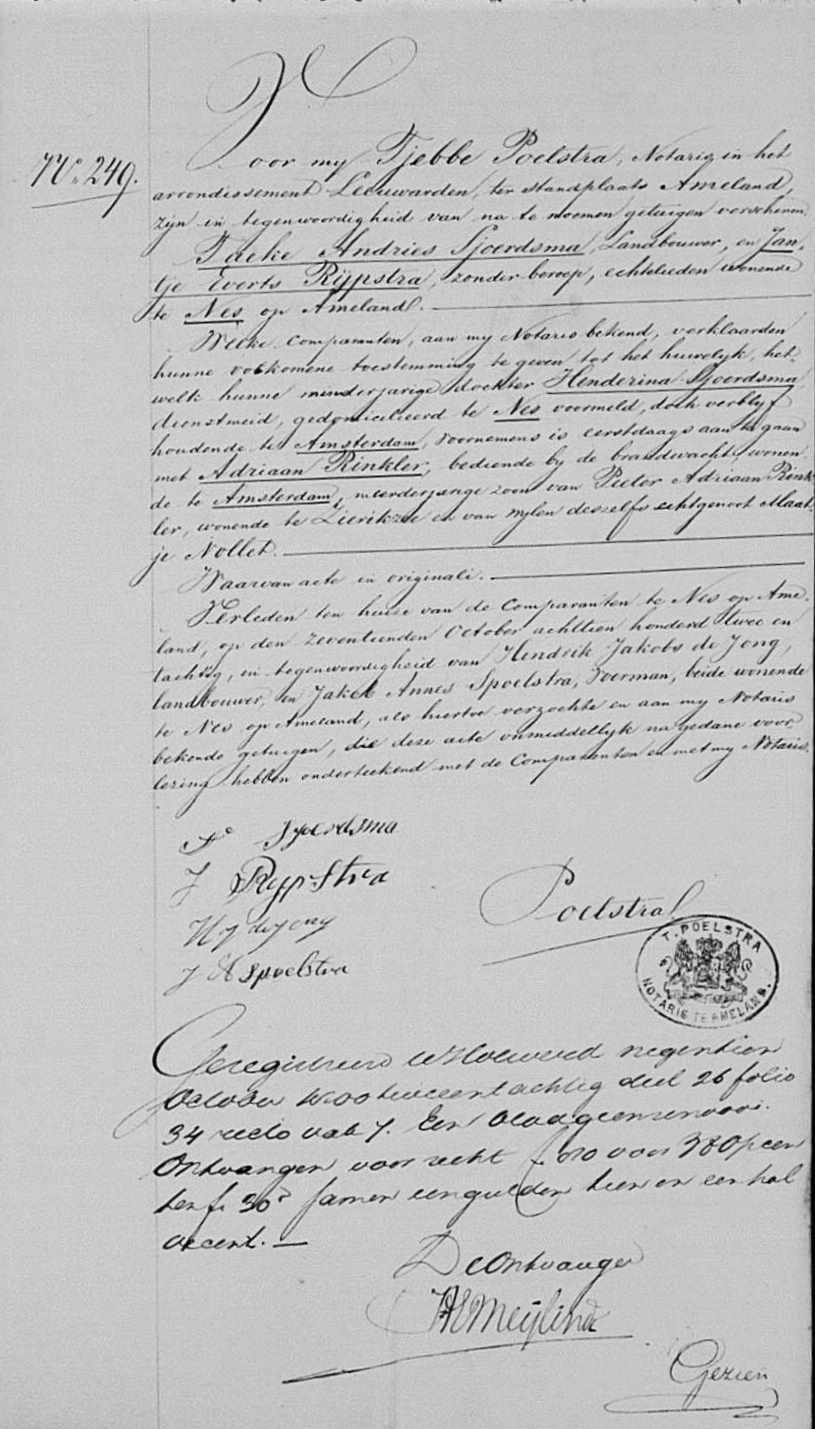 No. 249.
Voor my Tjebbe Poelstra, Notaris in het
arrondissement Leeuwarden, ter standplaats Ameland,
zijn in tegenwoordigheid van na te noemen getuigen verschenen
Taeke Andries Sjoerdsma, Landbouwer, en Jan-
tje Everts Rijpstra, zonder beroep, echtelieden wonende
te Nes op Ameland.
Welke comparanten, aan my Notaris bekend, verklaarden
hunne volkomene toestemming te geven tot het huwelyk, het-
welk hunne minderjarige dochter Henderina Sjoerdsma,
dienstmeid, gedomicilieerd te Nes voormeld, doch verblyf
houdende te Amsterdam, voornemens is eerstdaags aan te gaan
met Adriaan Rinkler, bediende by de brandwacht, wonen-
de te Amsterdam, meerderjarige zoon van Pieter Adriaan Rink-
ler, wonende te Zierikzee en van wylen deszelfs echtgenoot Maat-
je Nollet.
Waarvan acte in originali.
Verleden ten huize van de Comparanten te Nes op Ame-
land, op den zeventienden October achttien honderd twee en
tachtig, in tegenwoordigheid van Hendrik Jakobs de Jong,
landbouwer, en Jakob Annes Spoelstra, Voerman, beide wonende
te Nes op Ameland, als hiertoe verzochte en aan my Notaris
bekende getuigen, die deze acte onmiddellyk na gedane voor-
lezing hebben onderteekend met de Comparanten en met my Notaris.
Sjoerdsma
J Rypstra
H J de Jong
J A Spoelstra
Poelstra
T. POELSTRA
NOTARIS TE AMELAND.
Geregistreerd te Holwerd negentien
October 1800 twee en tachtig deel 26 folio
34 recto vak 7. Een blad geen renvooi.
Ontvangen voor recht f 0,80 voor 38 Opcen
ten f. 30⁵ samen een gulden tien en een hal
ve cent.
De Ontvanger
Meylink
Gezien